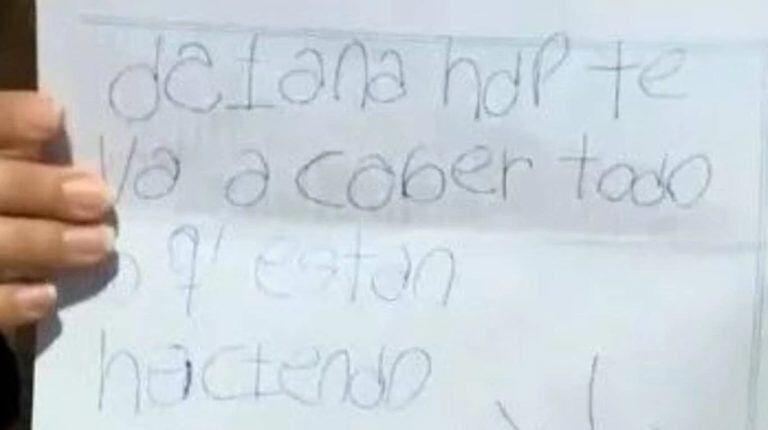 daIana hdP te
Va a caber todo
o q' estan
hacIendo